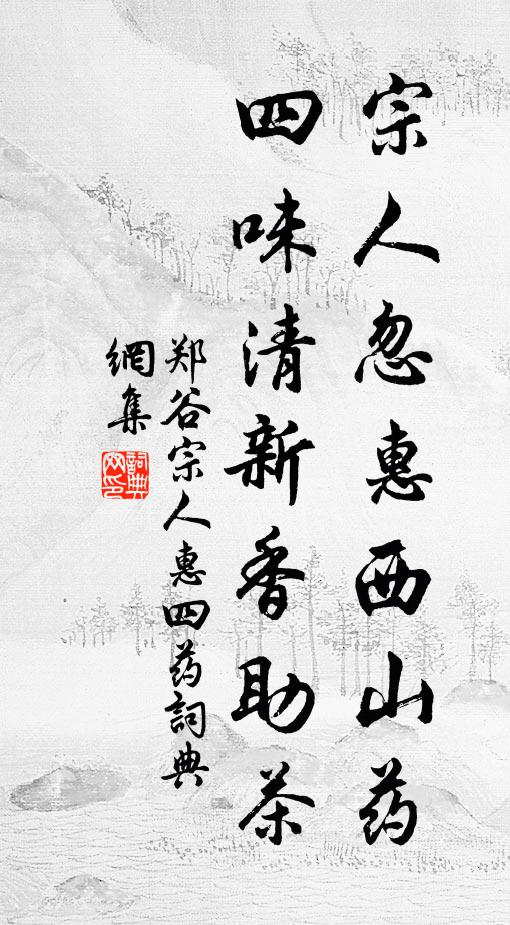 宗人忽惠西山药
四味清新香助茶
郑谷宗人惠四药詞典
網集
詞典網印